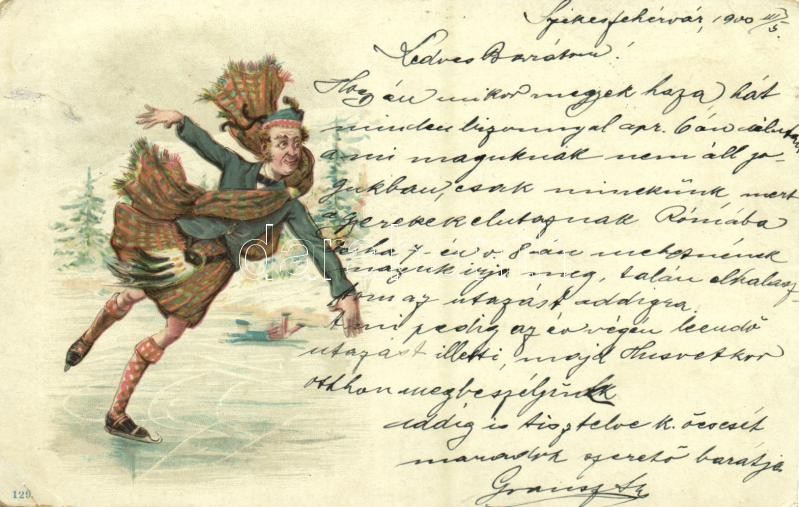 Székesfehérvár, 1900 III/5.
Kedves Barátom!
Hogy én mikor megyek haza, hát
minden bizonnyal apr. 6án
ami maguknak nem áll jo-
gukban, csak minekünk, mert
a gyerekek elutaznak Rómába
7-én v. 8-án mehetnénk
maguk írja meg, talán elhalasz-
tom az utazást addigra,
Ami pedig az év végén leendő
utazást illeti, majd Husvétkor
otthon megbeszéljük
addig is tisztelve k. öcscsét
maradok szerető barátja
129.
darabanth